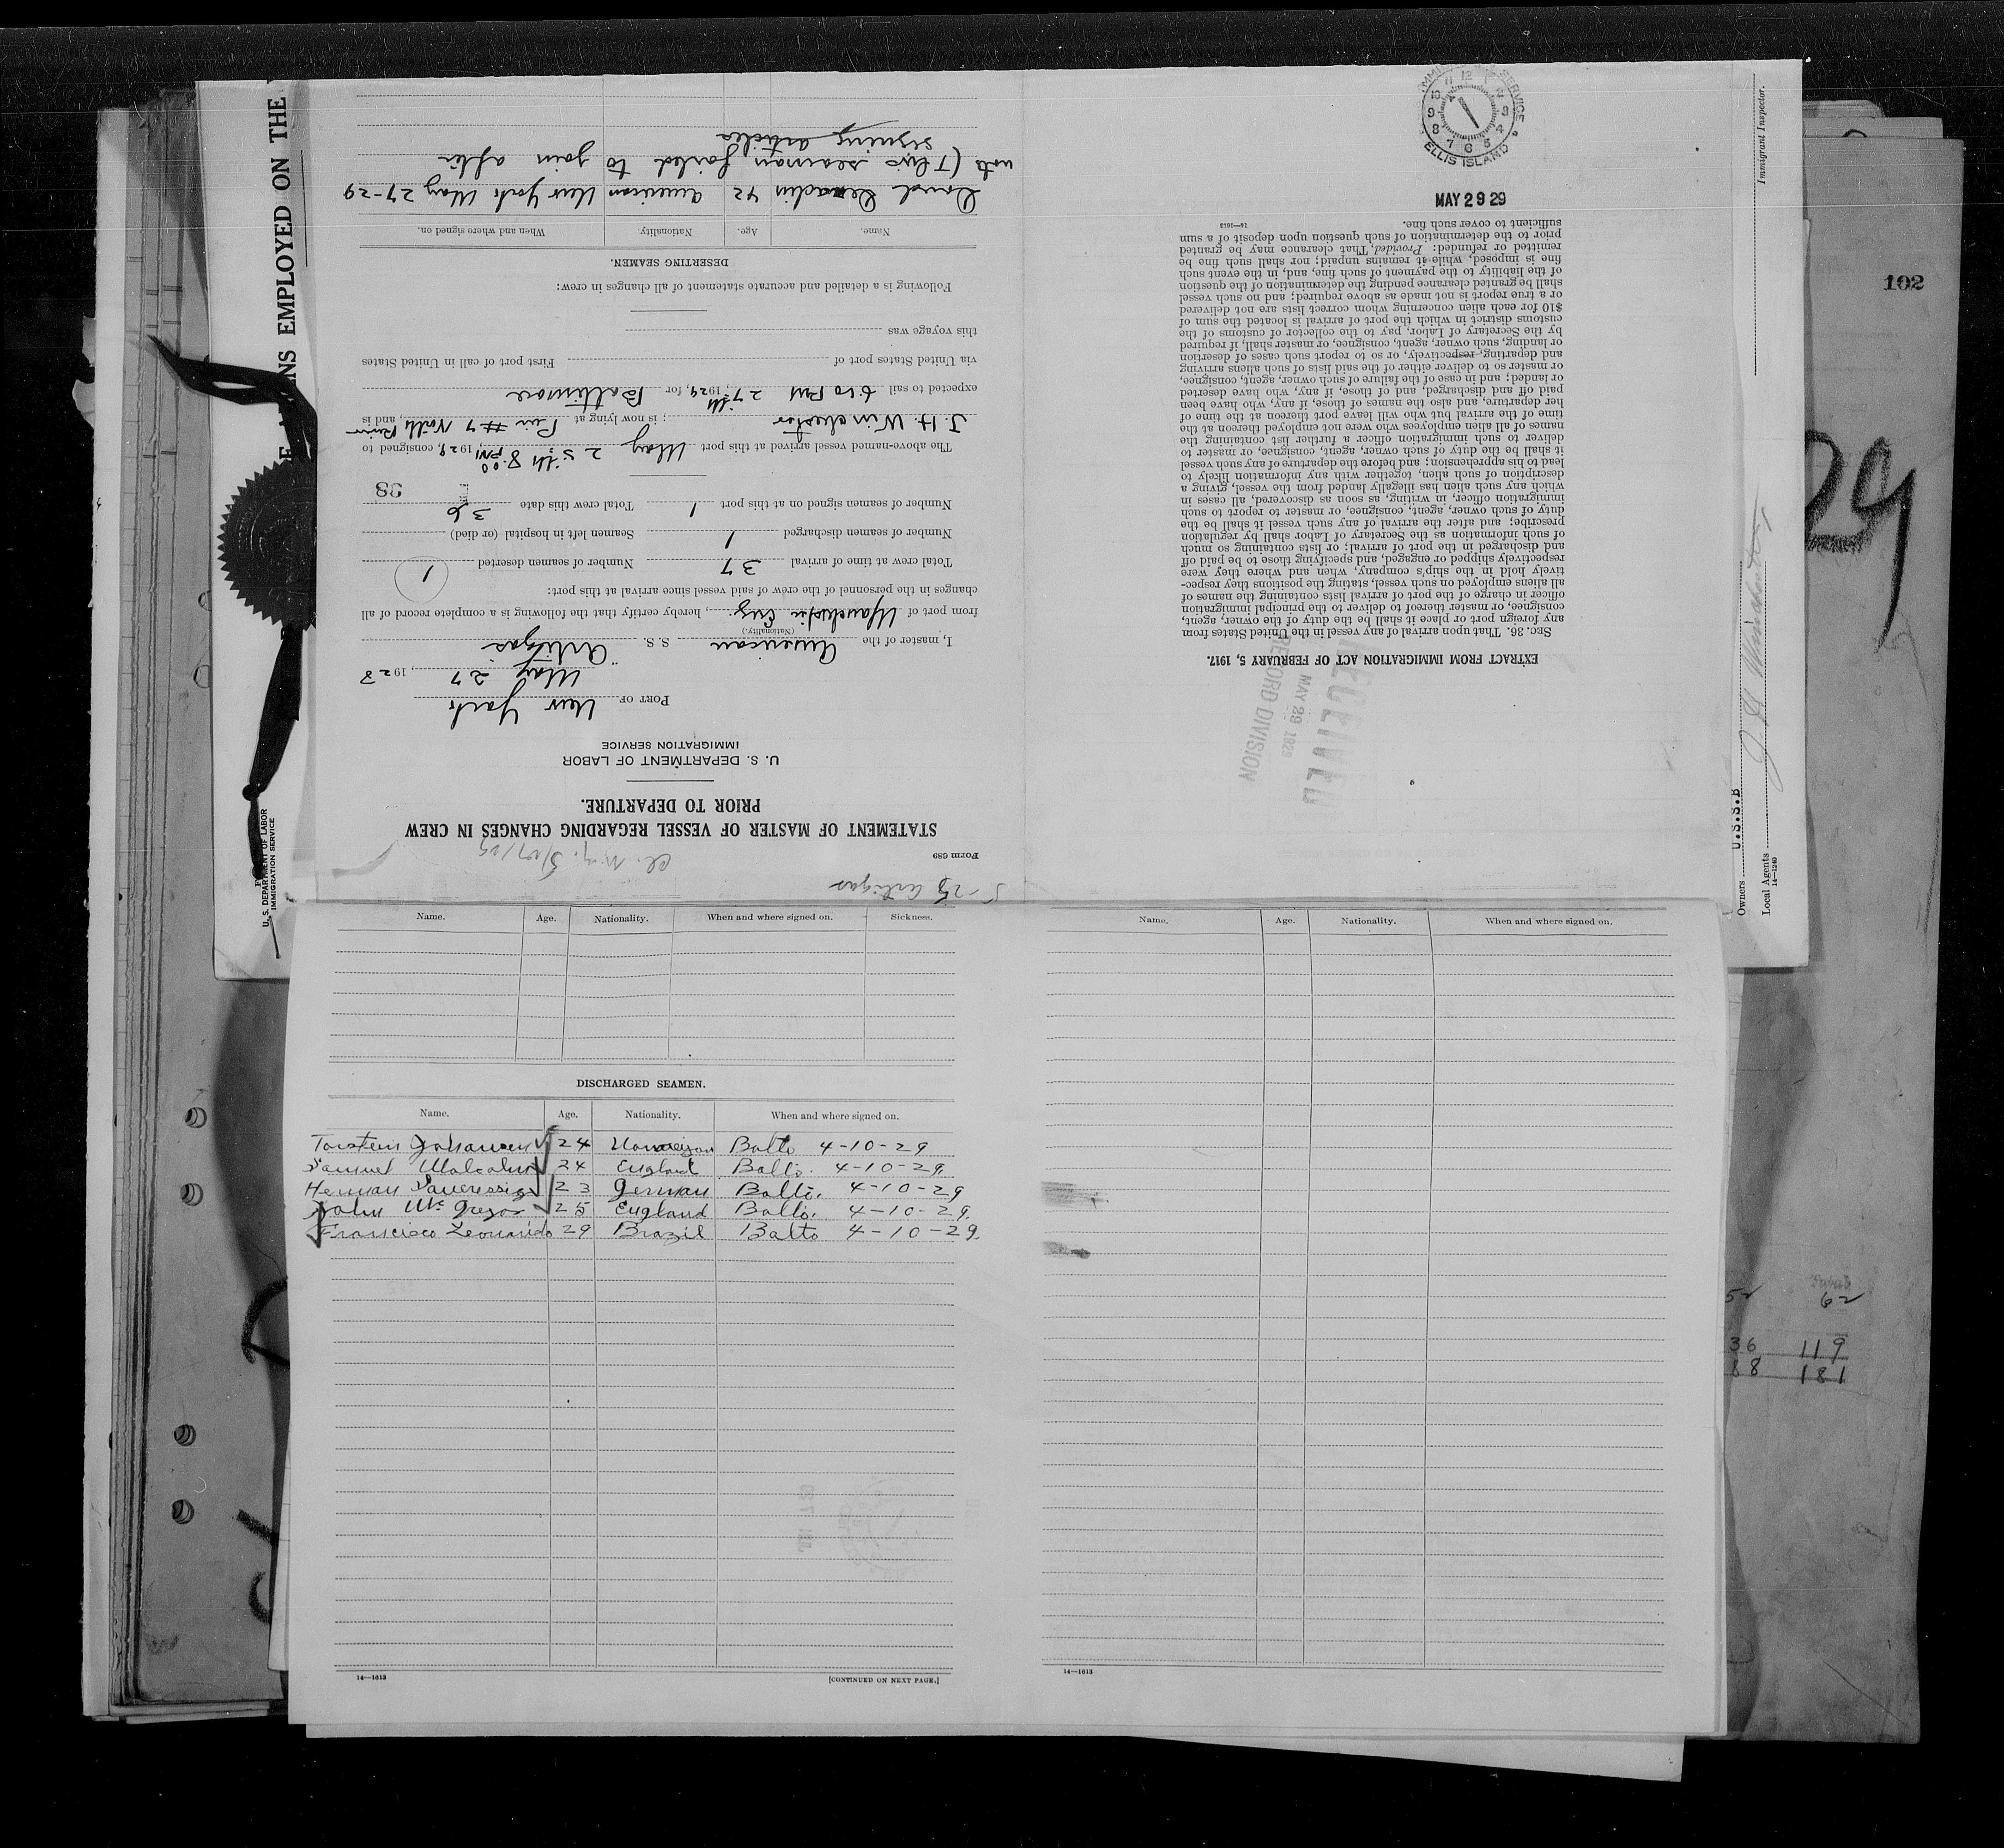 STATEMENT OF MASTER OF VESSEL REGARDING CHANGES IN CREW
PRIOR TO DEPARTURE.
Form 689
5-25 Artigas
U. S. DEPARTMENT OF LABOR
IMMIGRATION SERVICE
PORT OF New York
May 27, 1928
I, master of the American S. S. "Artigas
(Nationality.)
from port of Manchester Eng., hereby certify that the following is a complete record of all
changes in the personnel of the crew of said vessel since arrival at this port:
Total crew at time of arrival 37 Number of seamen deserted 1
Number of seamen discharged 1 Seamen left in hospital (or died)
Number of seamen signed on at this port 1 Total crew this date 36
98
The above-named vessel arrived at this port May 25th 8:00 PM, 1929, consigned to
J. H. Winchester; is now lying at Pier #7 North River, and is
expected to sail 6:00 PM 27th, 1929, for Baltimore
via United States port of First port of call in United States
this voyage was
Following is a detailed and accurate statement of all changes in crew:
DESERTING SEAMEN.
Name. Age. Nationality. When and where signed on.
42 American New York May 27-29
note (This seaman failed to join after
signing articles
EXTRACT FROM IMMIGRATION ACT OF FEBRUARY 5, 1917.
SEC. 36. That upon arrival of any vessel in the United States from
any foreign port or place it shall be the duty of the owner, agent,
consignee, or master thereof to deliver to the principal immigration
officer in charge of the port of arrival lists containing the names of
all aliens employed on such vessel, stating the positions they respec-
tively hold in the ship's company, when and where they were
respectively shipped or engaged, and specifying those to be paid off
and discharged in the port of arrival; or lists containing so much
of such information as the Secretary of Labor shall by regulation
prescribe; and after the arrival of any such vessel it shall be the
duty of such owner, agent, consignee, or master to report to such
immigration officer, in writing, as soon as discovered, all cases in
which any such alien has illegally landed from the vessel, giving a
description of such alien, together with any information likely to
lead to his apprehension; and before the departure of any such vessel
it shall be the duty of such owner, agent, consignee, or master to
deliver to such immigration officer a further list containing the
names of all alien employees who were not employed thereon at the
time of the arrival but who will leave port thereon at the time of
her departure, and also the names of those, if any, who have been
paid off and discharged, and of those, if any, who have deserted
or landed; and in case of the failure of such owner, agent, consignee,
or master so to deliver either of the said lists of such aliens arriving
and departing, respectively, or so to report such cases of desertion
or landing, such owner, agent, consignee, or master shall, if required
by the Secretary of Labor, pay to the collector of customs of the
customs district in which the port of arrival is located the sum of
$10 for each alien concerning whom correct lists are not delivered
or a true report is not made as above required; and no such vessel
shall be granted clearance pending the determination of the question
of the liability to the payment of such fine, and, in the event such
fine is imposed, while it remains unpaid; nor shall such fine be
remitted or refunded: Provided, That clearance may be granted
prior to the determination of such question upon deposit of a sum
sufficient to cover such fine.
14—1613
MAY 29 29
IMMIGRATION SERVICE
ELLIS ISLAND
12 1 2 3 4 5 6 7 8 9 10 11
RECEIVED
MAY 29 1929
RECORD DIVISION
Name. Age. Nationality. When and where signed on. Sickness.
DISCHARGED SEAMEN.
Name. Age. Nationality. When and where signed on.
Torstein Johansen 24 Norwegian Balto 4-10-29
Samuel Malcolm 24 England Balto. 4-10-29
Herman 23 German Balto. 4-10-29
John McGregor 25 England Balto. 4-10-29.
Francisco Leonardo 29 Brazil Balto 4-10-29.
14—1613
[CONTINUED ON NEXT PAGE.]
Name. Age. Nationality. When and where signed on.
14—1613
NS EMPLOYED ON THE
U. S. DEPARTMENT OF LABOR
IMMIGRATION SERVICE
Immigrant Inspector.
Owners U.S.S.B
Local Agents J H Winchester
14—1240
102
29
52 62
36 119
88 181